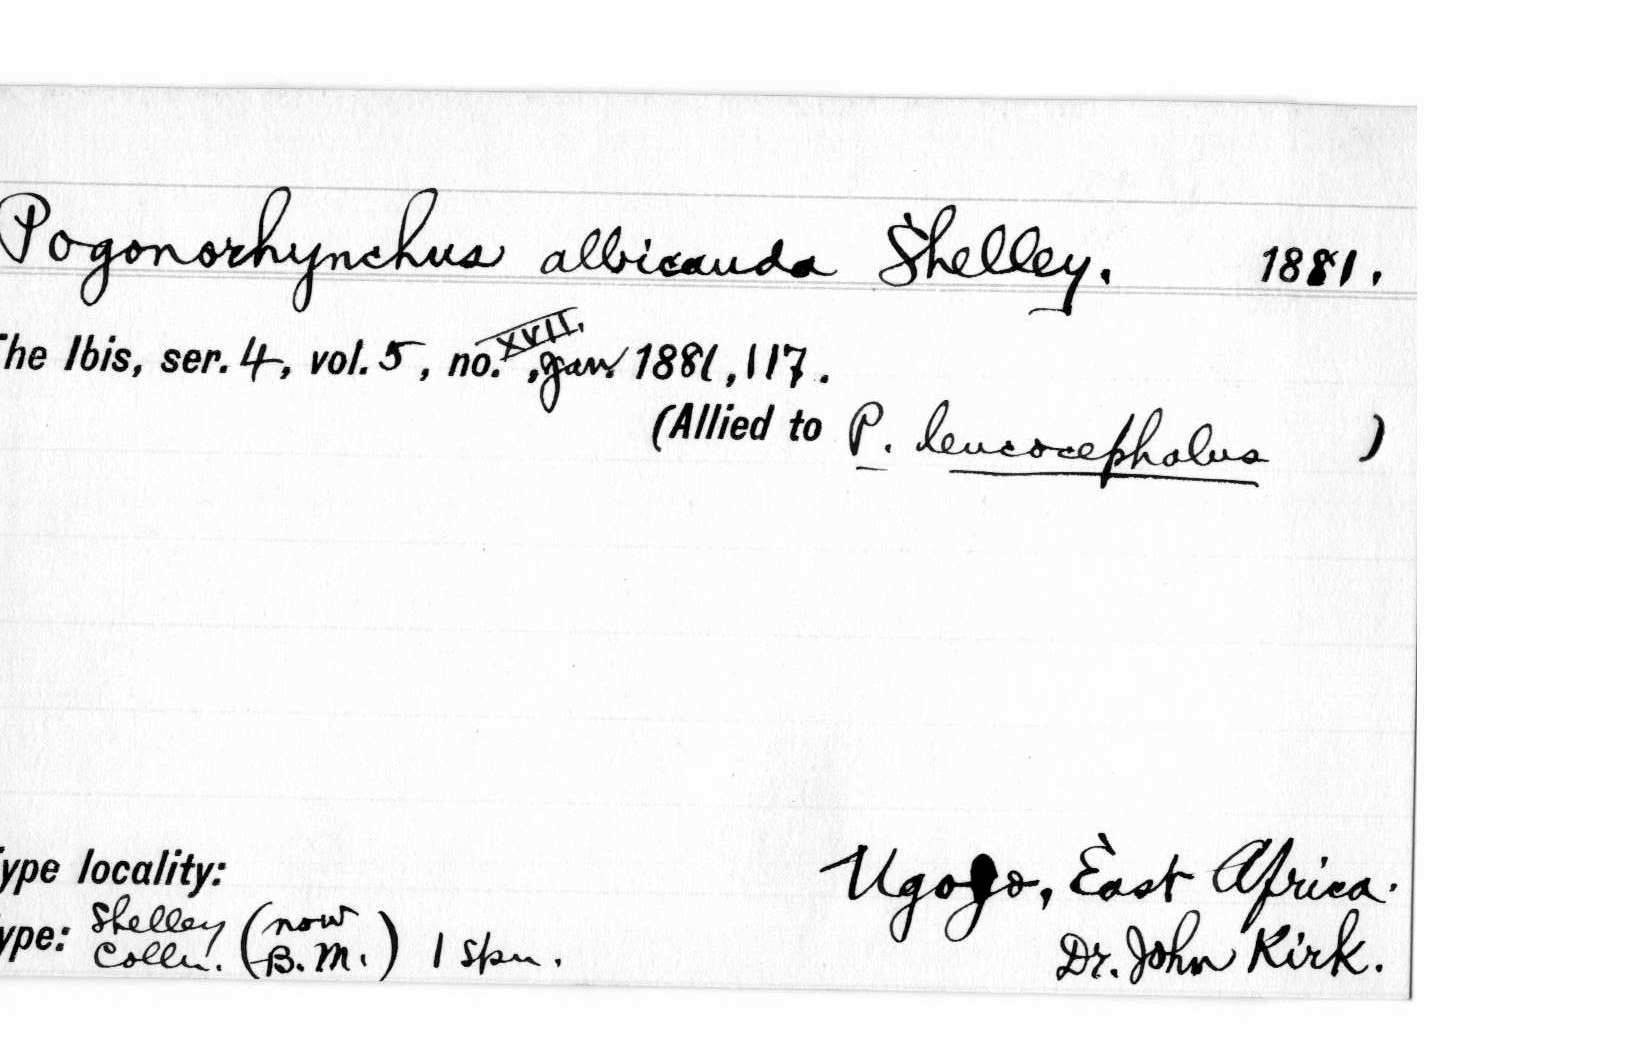 Pogonorhynchus albicauda Shelley. 1881.
The Ibis, ser. 4, vol. 5, no. XVII., Jan. 1881, 117.
(Allied to P. leucocephalus )
Type locality: Ugogo, East Africa.
Type: Shelley Colln. (now B.M.) 1 Spm. Dr. John Kirk.